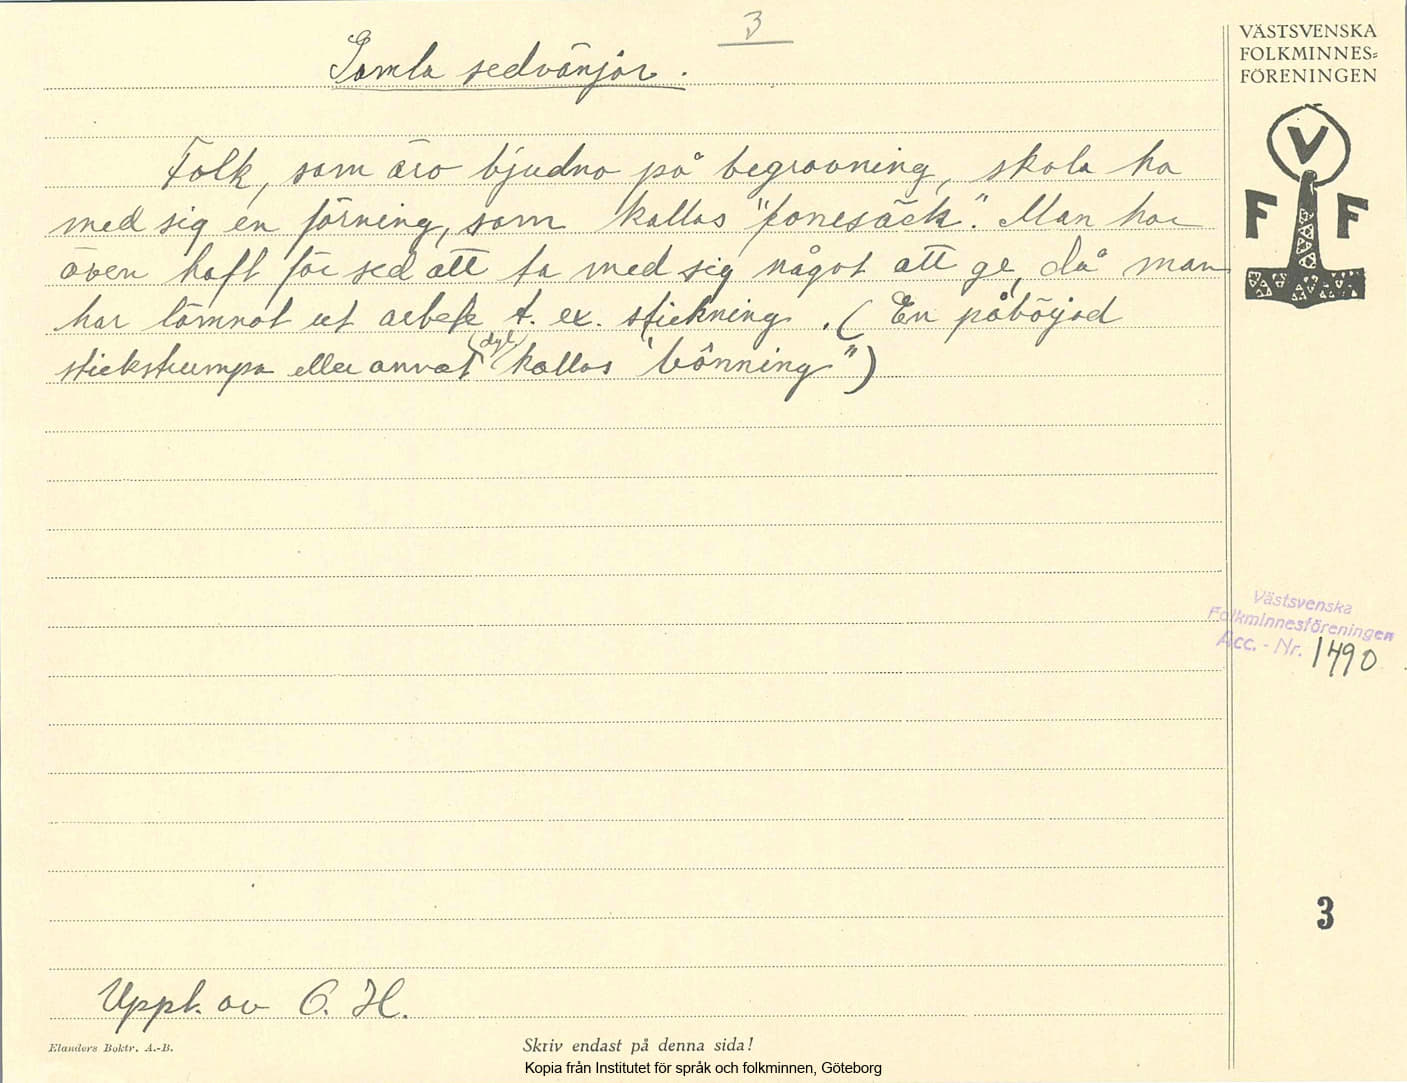 3
Gamla sedvänjor.
Folk, som äro bjudna på begravning, skola ha
med sig en förning, som kallas "fonesäck". Man har
även haft för sed att ta med sig något att ge, då man
har lämnat ut arbete t. ex. stickning. (En påböjad
stickstrumpa eller annat (dyl.) kallas "bönning")
Uppt. av C. H.
Elanders Boktr. A.-B.
Skriv endast på denna sida!
Kopia från Institutet för språk och folkminnen, Göteborg
VÄSTSVENSKA
FOLKMINNES=
FÖRENINGEN
V
F F
Västsvenska
Folkminnesföreningen
Acc. - Nr. 1490
3